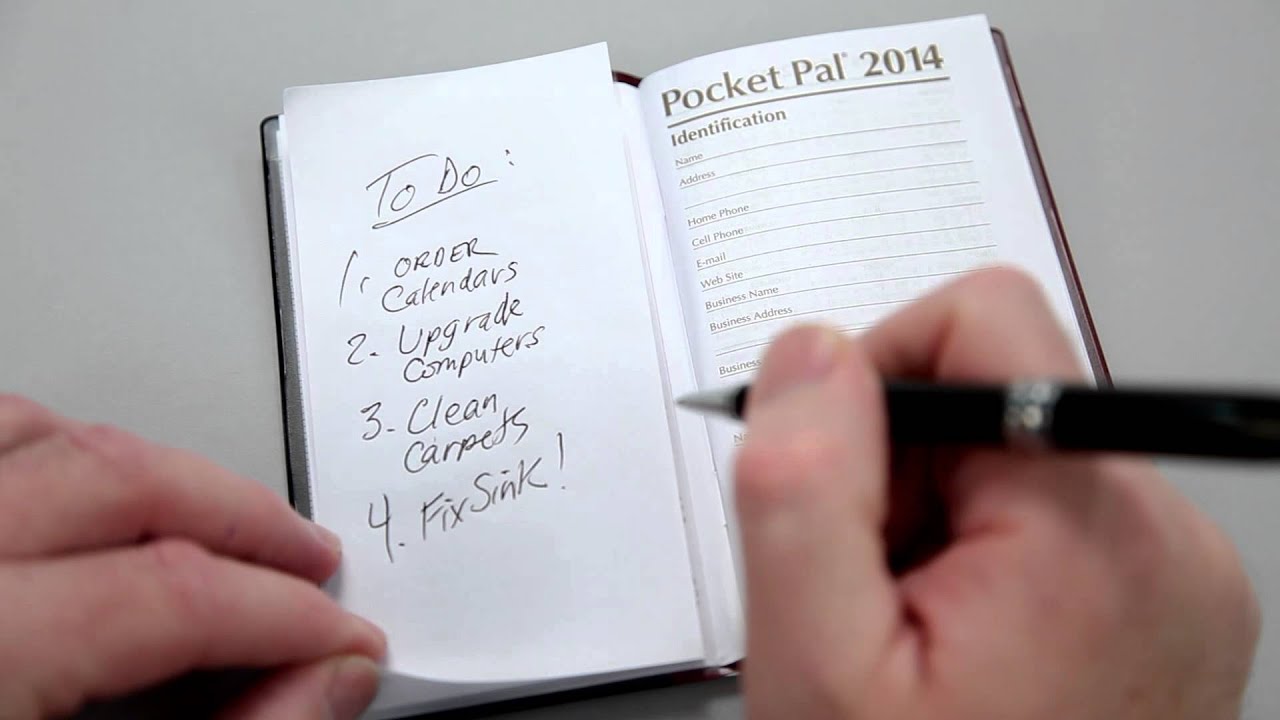 To Do :
1. ORDER
Calendars
2. Upgrade
Computers
3. Clean
Carpets
4. Fix Sink!
Pocket Pal® 2014
Identification
Name
Address
Home Phone
Cell Phone
E-mail
Web Site
Business Name
Business Address
Business